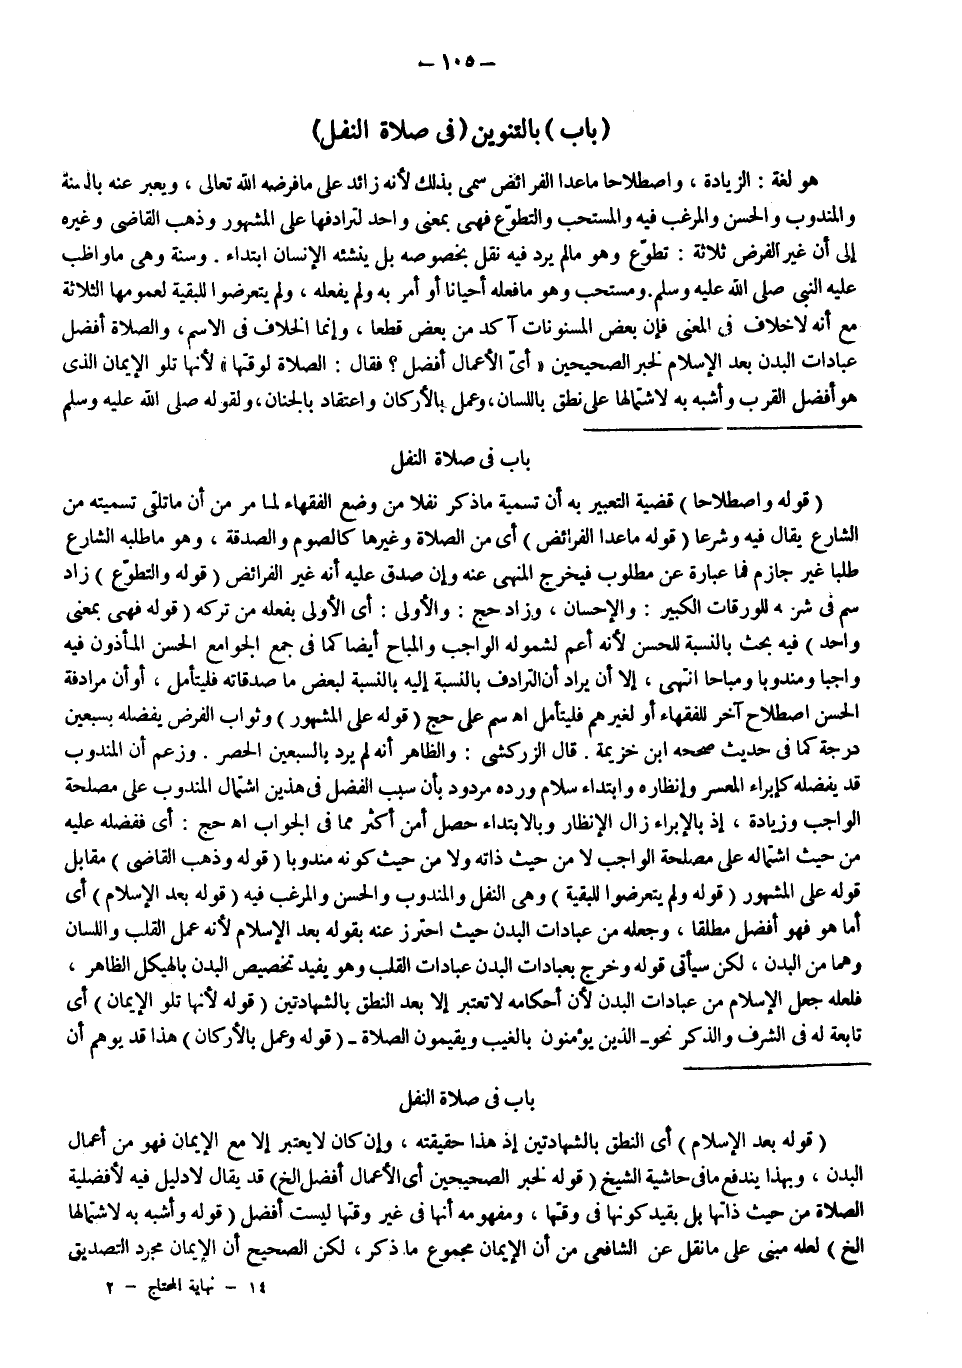 - ١٠٥ -
( باب ) بالتنوين ( فى صلاة النفل )
هو لغة : الزيادة ، واصطلاحا ماعدا الفرائض سمى بذلك لأنه زائد على مافرضه الله تعالى ، ويعبر عنه بالسنة
والمندوب والحسن والمرغب فيه والمستحب والتطوّع فهى بمعنى واحد لترادفها على المشهور وذهب القاضى وغيره
إلى أن غير الفرض ثلاثة : تطوّع وهو مالم يرد فيه نقل بخصوصه بل ينشئه الإنسان ابتداء . وسنة وهى ماواظب
عليه النبى صلى الله عليه وسلم . ومستحب وهو مافعله أحيانا أو أمر به ولم يفعله ، ولم يتعرضوا للبقية لعمومها الثلاثة
مع أنه لاخلاف فى المعنى فإن بعض المسنونات آكد من بعض قطعا ، وإنما الخلاف فى الاسم ، والصلاة أفضل
عبادات البدن بعد الإسلام لخبر الصحيحين « أىّ الأعمال أفضل ؟ فقال : الصلاة لوقتها » لأنها تلو الإيمان الذى
هو أفضل القرب وأشبه به لاشتمالها على نطق باللسان ، وعمل بالأركان واعتقاد بالجنان ، ولقوله صلى الله عليه وسلم
باب فى صلاة النفل
( قوله واصطلاحا ) قضية التعبير به أن تسمية ماذكر نفلا من وضع الفقهاء لما مر من أن ماتلقى تسميته من
الشارع يقال فيه وشرعا ( قوله ماعدا الفرائض ) أى من الصلاة وغيرها كالصوم والصدقة ، وهو ماطلبه الشارع
طلبا غير جازم فما عبارة عن مطلوب فيخرج المنهى عنه وإن صدق عليه أنه غير الفرائض ( قوله والتطوّع ) زاد
سم فى شرحه للورقات الكبير : والإحسان ، وزاد حج : والأولى : أى الأولى بفعله من تركه ( قوله فهى بمعنى
واحد ) فيه بحث بالنسبة للحسن لأنه أعم لشموله الواجب والمباح أيضا كما فى جمع الجوامع الحسن المأذون فيه
واجبا ومندوبا ومباحا انتهى ، إلا أن يراد أن الترادف بالنسبة إليه بالنسبة لبعض ما صدقاته فليتأمل ، أو أن مرادفة
الحسن اصطلاح آخر للفقهاء أو لغيرهم فليتأمل اه سم على حج ( قوله على المشهور ) وثواب الفرض يفضله بسبعين
درجة كما فى حديث صححه ابن خزيمة . قال الزركشى : والظاهر أنه لم يرد بالسبعين الحصر . وزعم أن المندوب
قد يفضله كإبراء المعسر وإنظاره وابتداء سلام ورده مردود بأن سبب الفضل فى هذين اشتمال المندوب على مصلحة
الواجب وزيادة ، إذ بالإبراء زال الإنظار وبالابتداء حصل أمن أكثر مما فى الجواب اه حج : أى ففضله عليه
من حيث اشتماله على مصلحة الواجب لا من حيث ذاته ولا من حيث كونه مندوبا ( قوله وذهب القاضى ) مقابل
قوله على المشهور ( قوله ولم يتعرضوا للبقية ) وهى النفل والمندوب والحسن والمرغب فيه ( قوله بعد الإسلام ) أى
أما هو فهو أفضل مطلقا ، وجعله من عبادات البدن حيث احترز عنه بقوله بعد الإسلام لأنه عمل القلب واللسان
وهما من البدن ، لكن سيأتى قوله وخرج بعبادات البدن عبادات القلب وهو يفيد تخصيص البدن بالهيكل الظاهر ،
فلعله جعل الإسلام من عبادات البدن لأن أحكامه لاتعتبر إلا بعد النطق بالشهادتين ( قوله لأنها تلو الإيمان ) أى
تابعة له فى الشرف والذكر نحو ـ الذين يؤمنون بالغيب ويقيمون الصلاة ـ ( قوله وعمل بالأركان ) هذا قد يوهم أن
باب فى صلاة النفل
( قوله بعد الإسلام ) أى النطق بالشهادتين إذ هذا حقيقته ، وإن كان لايعتبر إلا مع الإيمان فهو من أعمال
البدن ، وبهذا يندفع مافى حاشية الشيخ ( قوله لخبر الصحيحين أى الأعمال أفضل الخ ) قد يقال لادليل فيه لأفضلية
الصلاة من حيث ذاتها بل بقيد كونها فى وقتها ، ومفهومه أنها فى غير وقتها ليست أفضل ( قوله وأشبه به لاشتمالها
الخ ) لعله مبنى على مانقل عن الشافعى من أن الإيمان مجموع ماذكر ، لكن الصحيح أن الإيمان مجرد التصديق
١٤ - نهاية المحتاج - ٢